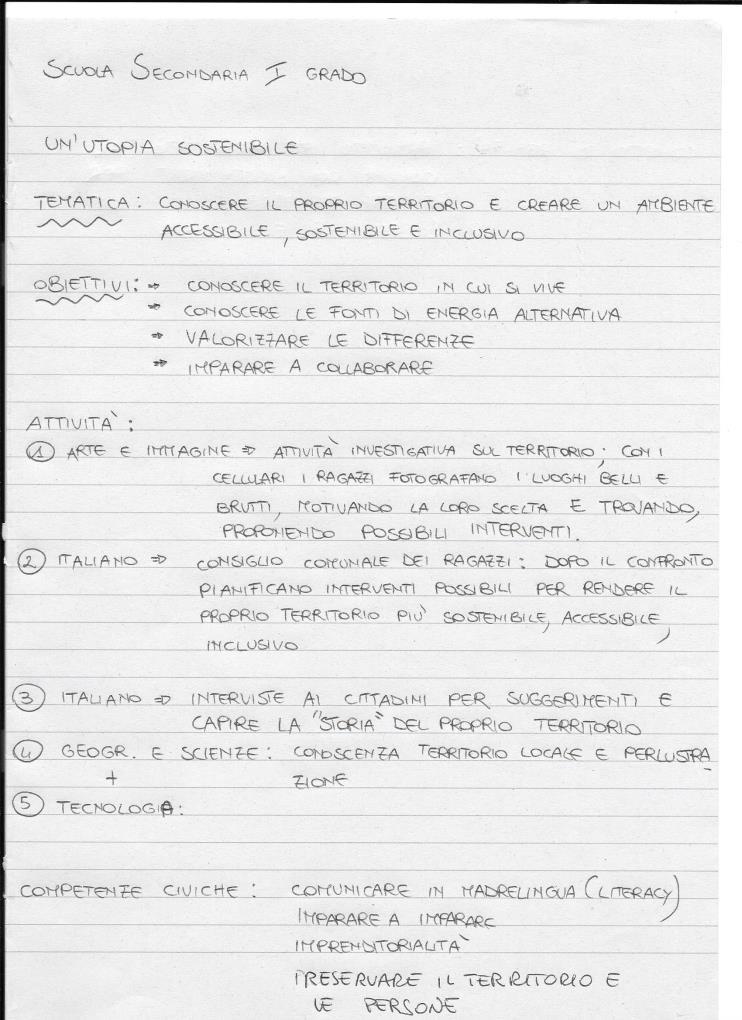 SCUOLA SECONDARIA I GRADO
UN'UTOPIA SOSTENIBILE
TEMATICA: CONOSCERE IL PROPRIO TERRITORIO E CREARE UN AMBIENTE
ACCESSIBILE, SOSTENIBILE E INCLUSIVO
OBIETTIVI: ⇒ CONOSCERE IL TERRITORIO IN CUI SI VIVE
⇒ CONOSCERE LE FONTI DI ENERGIA ALTERNATIVA
⇒ VALORIZZARE LE DIFFERENZE
⇒ IMPARARE A COLLABORARE
ATTIVITÀ:
① ARTE E IMMAGINE ⇒ ATTIVITÀ INVESTIGATIVA SUL TERRITORIO; CON I
CELLULARI I RAGAZZI FOTOGRAFANO I LUOGHI BELLI E
BRUTTI, MOTIVANDO LA LORO SCELTA E TROVANDO,
PROPONENDO POSSIBILI INTERVENTI.
② ITALIANO ⇒ CONSIGLIO COMUNALE DEI RAGAZZI: DOPO IL CONFRONTO
PIANIFICANO INTERVENTI POSSIBILI PER RENDERE IL
PROPRIO TERRITORIO PIÙ SOSTENIBILE, ACCESSIBILE,
INCLUSIVO
③ ITALIANO ⇒ INTERVISTE AI CITTADINI PER SUGGERIMENTI E
CAPIRE LA "STORIA" DEL PROPRIO TERRITORIO
④ GEOGR. E SCIENZE: CONOSCENZA TERRITORIO LOCALE E PERLUSTRA
+ ZIONE
⑤ TECNOLOGIA:
COMPETENZE CIVICHE: COMUNICARE IN MADRELINGUA (LITERACY)
IMPARARE A IMPARARE
IMPRENDITORIALITÀ
PRESERVARE IL TERRITORIO E
LE PERSONE